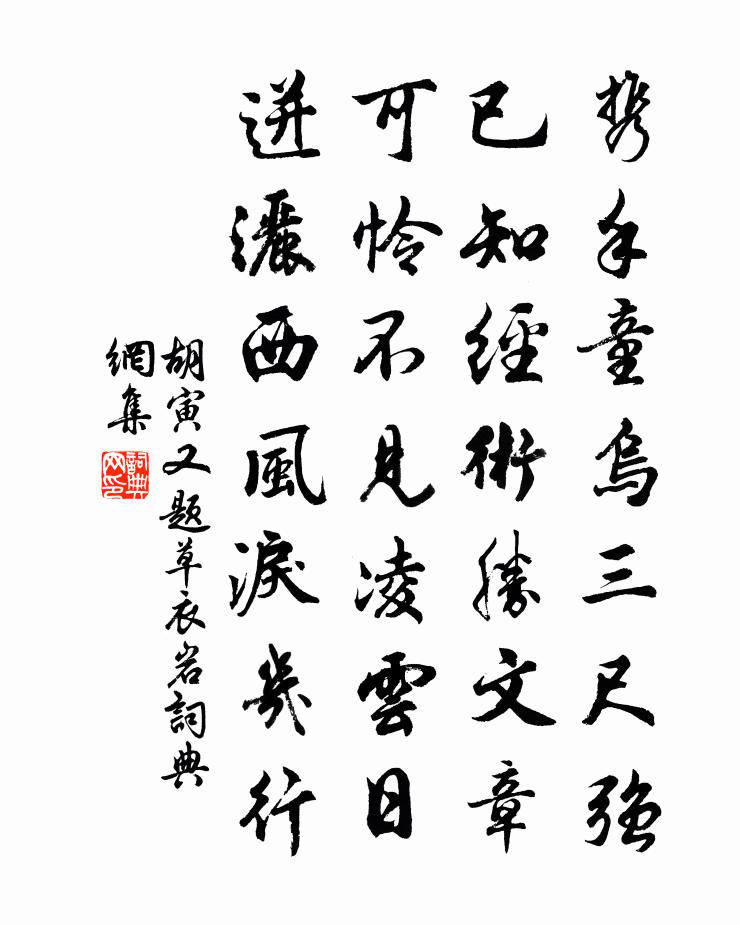 携手童烏三尺強
已知經術勝文章
可怜不見凌雲日
迸灑西風淚幾行
胡寅又題草衣岩詞典
網集
詞典網印